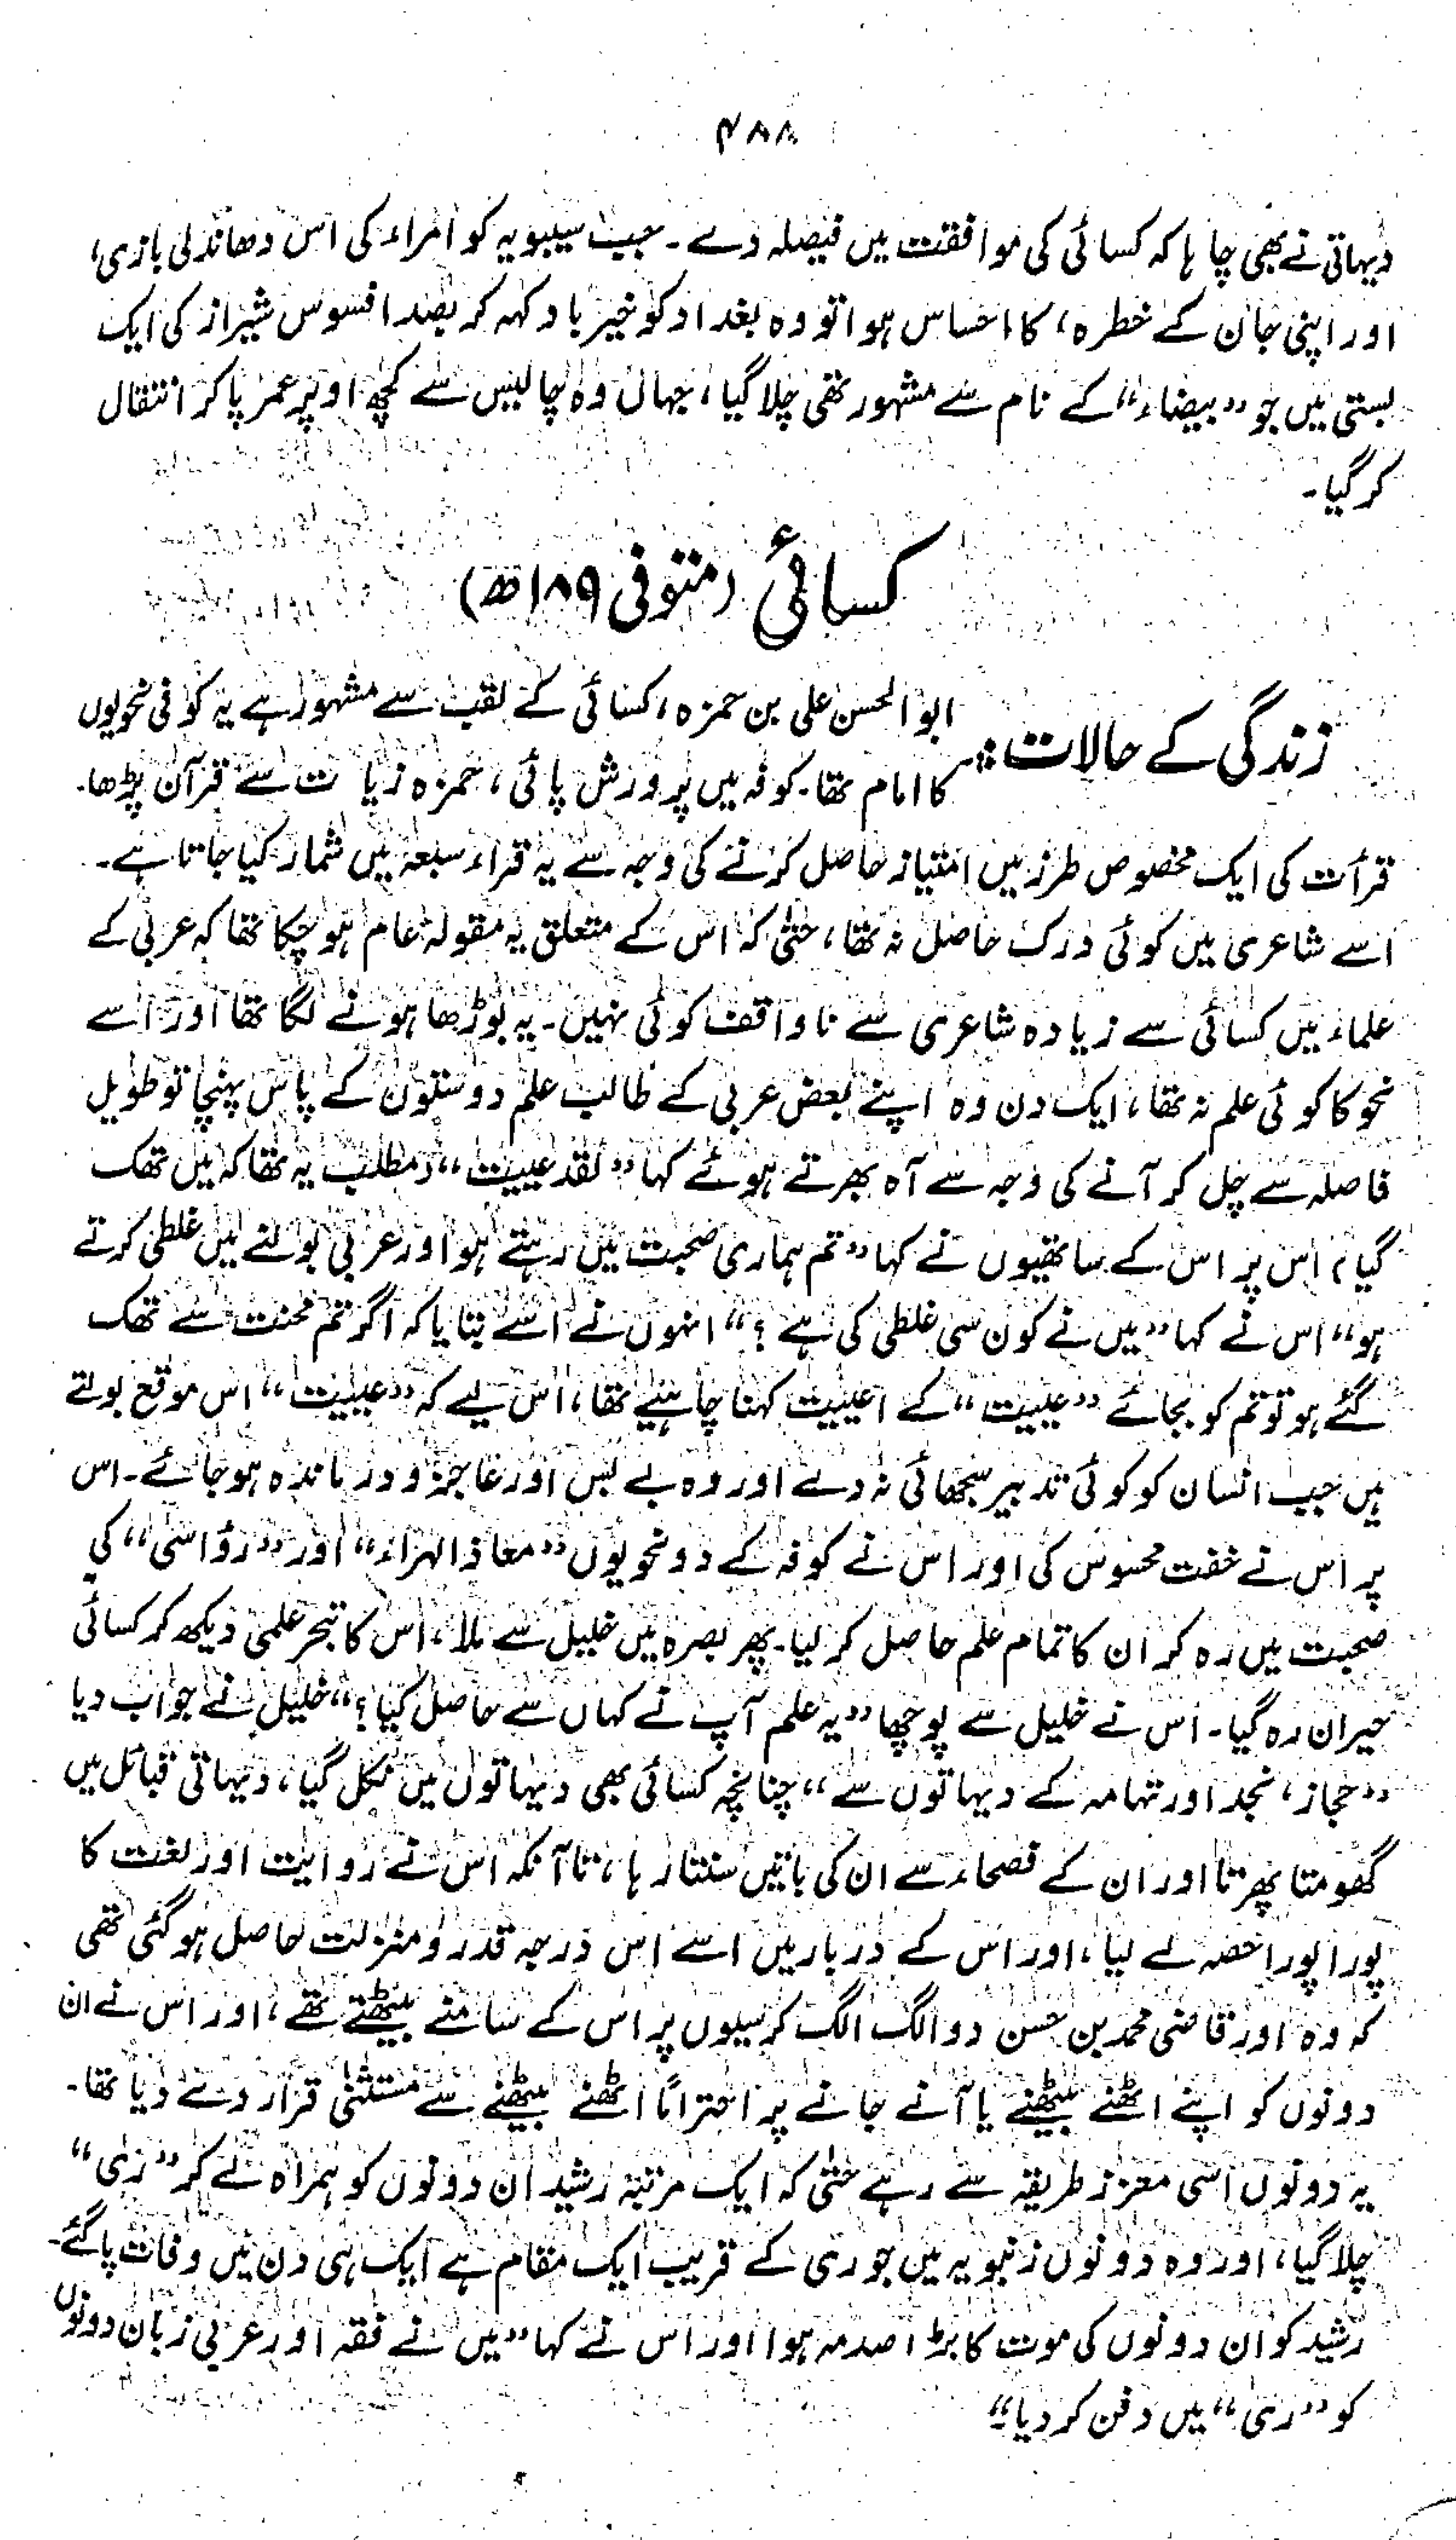 ۴۸۸
دیہاتی نے بھی چاہا کہ کسائی کی موافقت میں فیصلہ دے۔ جب سیبویہ کو امراء کی اس دھاندلی بازی،
اور اپنی جان کے خطرہ، کا احساس ہوا تو وہ بغداد کو خیر باد کہہ کر بصد افسوس شیراز کی ایک
بستی میں جو ”بیضاء“ کے نام سے مشہور تھی چلا گیا، جہاں وہ چالیس سے کچھ اوپر عمر پا کر انتقال
کر گیا۔
کسائی (متوفی ۱۸۹ھ)
زندگی کے حالات:۔ ابو الحسن علی بن حمزہ، کسائی کے لقب سے مشہور ہے یہ کوفی نحویوں
کا امام تھا۔ کوفہ میں پرورش پائی، حمزہ زیات سے قرآن پڑھا۔
قرأت کی ایک مخصوص طرز میں امتیاز حاصل کرنے کی وجہ سے یہ قراء سبعہ میں شمار کیا جاتا ہے۔
اسے شاعری میں کوئی درک حاصل نہ تھا، حتیٰ کہ اس کے متعلق یہ مقولہ عام ہو چکا تھا کہ عربی کے
علماء میں کسائی سے زیادہ شاعری سے ناواقف کوئی نہیں۔ یہ بوڑھا ہونے لگا تھا اور اسے
نحو کا کوئی علم نہ تھا، ایک دن وہ اپنے بعض عربی کے طالب علم دوستوں کے پاس پہنچا تو طویل
فاصلہ سے چل کر آنے کی وجہ سے آہ بھرتے ہوئے کہا ”لقد عییت“ (مطلب یہ تھا کہ میں تھک
گیا) اس پر اس کے ساتھیوں نے کہا ”تم ہماری صحبت میں رہتے ہو اور عربی بولنے میں غلطی کرتے
ہو“ اس نے کہا ”میں نے کون سی غلطی کی ہے؟“ انہوں نے اسے بتایا کہ اگر تم محنت سے تھک
گئے ہو تو تم کو بجائے ”عییت“ کے اعییت کہنا چاہیے تھا، اس لیے کہ ”عییت“ اس موقع بولتے
ہیں جب انسان کو کوئی تدبیر سجھائی نہ دے اور وہ بے بس اور عاجز و درماندہ ہو جائے۔ اس
پر اس نے خفت محسوس کی اور اس نے کوفہ کے دو نحویوں ”معاذ الہراء“ اور ”رؤاسی“ کی
صحبت میں رہ کر ان کا تمام علم حاصل کر لیا۔ پھر بصرہ میں خلیل سے ملا، اس کا تبحر علمی دیکھ کر کسائی
حیران رہ گیا۔ اس نے خلیل سے پوچھا ”یہ علم آپ نے کہاں سے حاصل کیا؟“ خلیل نے جواب دیا
”حجاز، نجد اور تہامہ کے دیہاتوں سے“ چنانچہ کسائی بھی دیہاتوں میں نکل گیا، دیہاتی قبائل میں
گھومتا پھرتا اور ان کے فصحاء سے ان کی باتیں سنتا رہا، تا آنکہ اس نے روایت اور لغت کا
پورا پورا حصہ لے لیا، اور اس کے دربار میں اسے اس درجہ قدر و منزلت حاصل ہو گئی تھی
کہ وہ اور قاضی محمد بن حسن دو الگ الگ کرسیوں پر اس کے سامنے بیٹھتے تھے، اور اس نے ان
دونوں کو اپنے اٹھنے بیٹھنے یا آنے جانے پر احتراماً اٹھنے بیٹھنے سے مستثنیٰ قرار دے دیا تھا۔
یہ دونوں اسی معزز طریقہ سے رہے حتیٰ کہ ایک مرتبہ رشید ان دونوں کو ہمراہ لے کر ”رَی“
چلا گیا، اور وہ دونوں زنبویہ میں جو ری کے قریب ایک مقام ہے ایک ہی دن میں وفات پا گئے۔
رشید کو ان دونوں کی موت کا بڑا صدمہ ہوا اور اس نے کہا ”میں نے فقہ اور عربی زبان دونوں
کو ”ری“ میں دفن کر دیا“